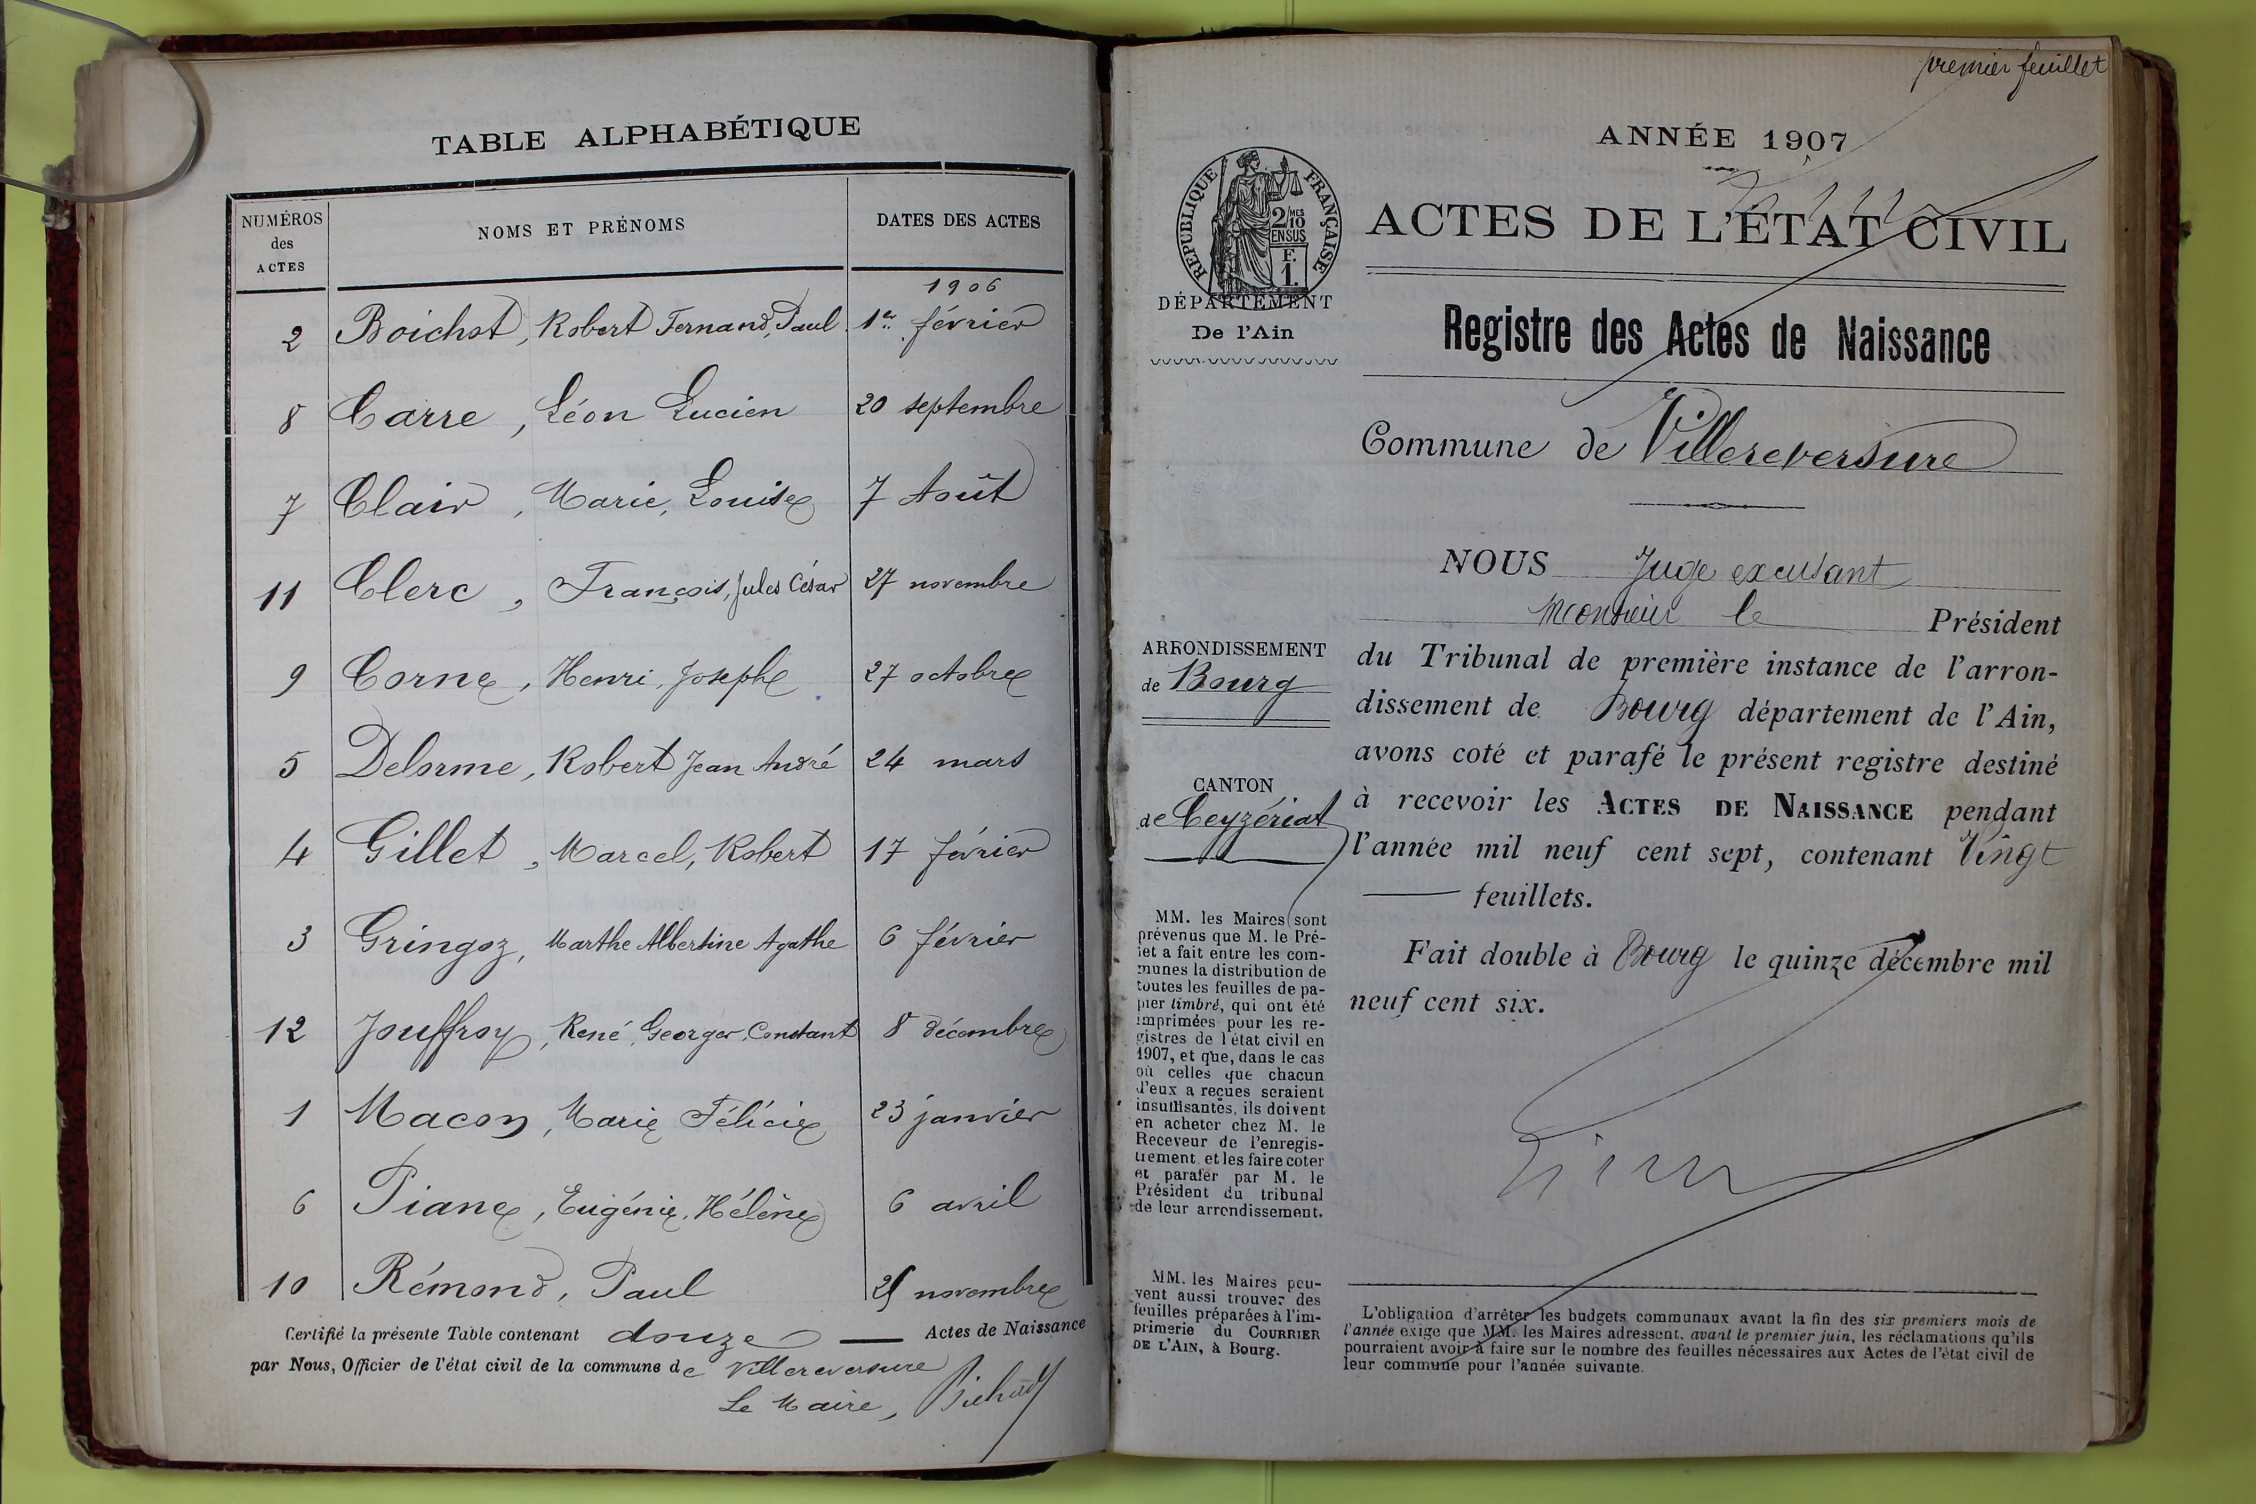 TABLE ALPHABÉTIQUE
NUMÉROS des ACTES
NOMS ET PRÉNOMS
DATES DES ACTES
1906
2 Boichot, Robert Fernand, Paul 1er février
8 Carre, Léon Lucien 20 septembre
7 Clair, Marie, Louise 7 Août
11 Clerc, François, Jules César 27 novembre
9 Corne, Henri, Joseph 27 octobre
5 Delorme, Robert Jean André 24 mars
4 Gillet, Marcel, Robert 17 février
3 Gringoz, Marthe Albertine Agathe 6 février
12 Jouffroy, René, Georges, Constant 8 décembre
1 Macon, Marie Félicie 23 janvier
6 Piane, Eugénie, Hélène 6 avril
10 Rémond, Paul novembre
Certifié la présente Table contenant douze Actes de Naissance
par Nous, Officier de l'état civil de la commune de Villereversure
Le Maire,
premier feuillet
ANNÉE 1907
RÉPUBLIQUE FRANÇAISE
2/10 MES
EN SUS
F.
1.
ACTES DE L'ÉTAT CIVIL
DÉPARTEMENT
De l'Ain
Registre des Actes de Naissance
Commune de Villereversure
NOUS Juge excusant
Monsieur le Président
ARRONDISSEMENT
de Bourg
du Tribunal de première instance de l'arron-
dissement de Bourg département de l'Ain,
avons coté et parafé le présent registre destiné
CANTON
de Ceyzériat
à recevoir les ACTES DE NAISSANCE pendant
l'année mil neuf cent sept, contenant Vingt
feuillets.
MM. les Maires sont
prévenus que M. le Pré-
fet a fait entre les com-
munes la distribution de
toutes les feuilles de pa-
pier timbré, qui ont été
imprimées pour les re-
gistres de l'état civil en
1907, et que, dans le cas
où celles que chacun
d'eux a reçues seraient
insuffisantes, ils doivent
en acheter chez M. le
Receveur de l'enregis-
trement et les faire coter
et parafer par M. le
Président du tribunal
de leur arrondissement.
Fait double à Bourg le quinze décembre mil
neuf cent six.
MM. les Maires peu-
vent aussi trouver des
feuilles préparées à l'im-
primerie du COURRIER
DE L'AIN, à Bourg.
L'obligation d'arrêter les budgets communaux avant la fin des six premiers mois de
l'année exige que MM. les Maires adressent, avant le premier juin, les réclamations qu'ils
pourraient avoir à faire sur le nombre des feuilles nécessaires aux Actes de l'état civil de
leur commune pour l'année suivante.